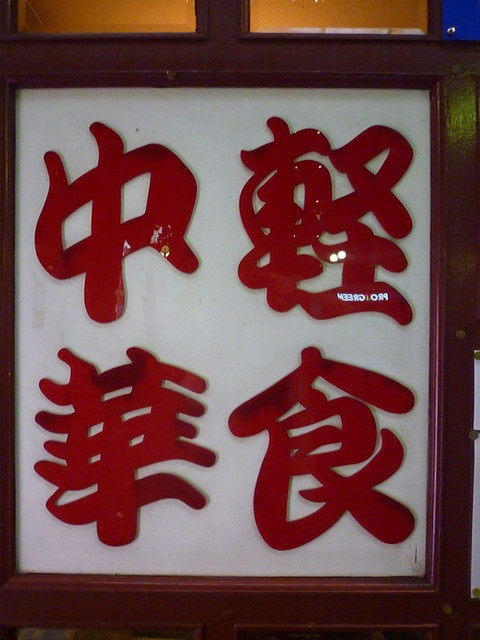 中華
軽食
PRO GREEN